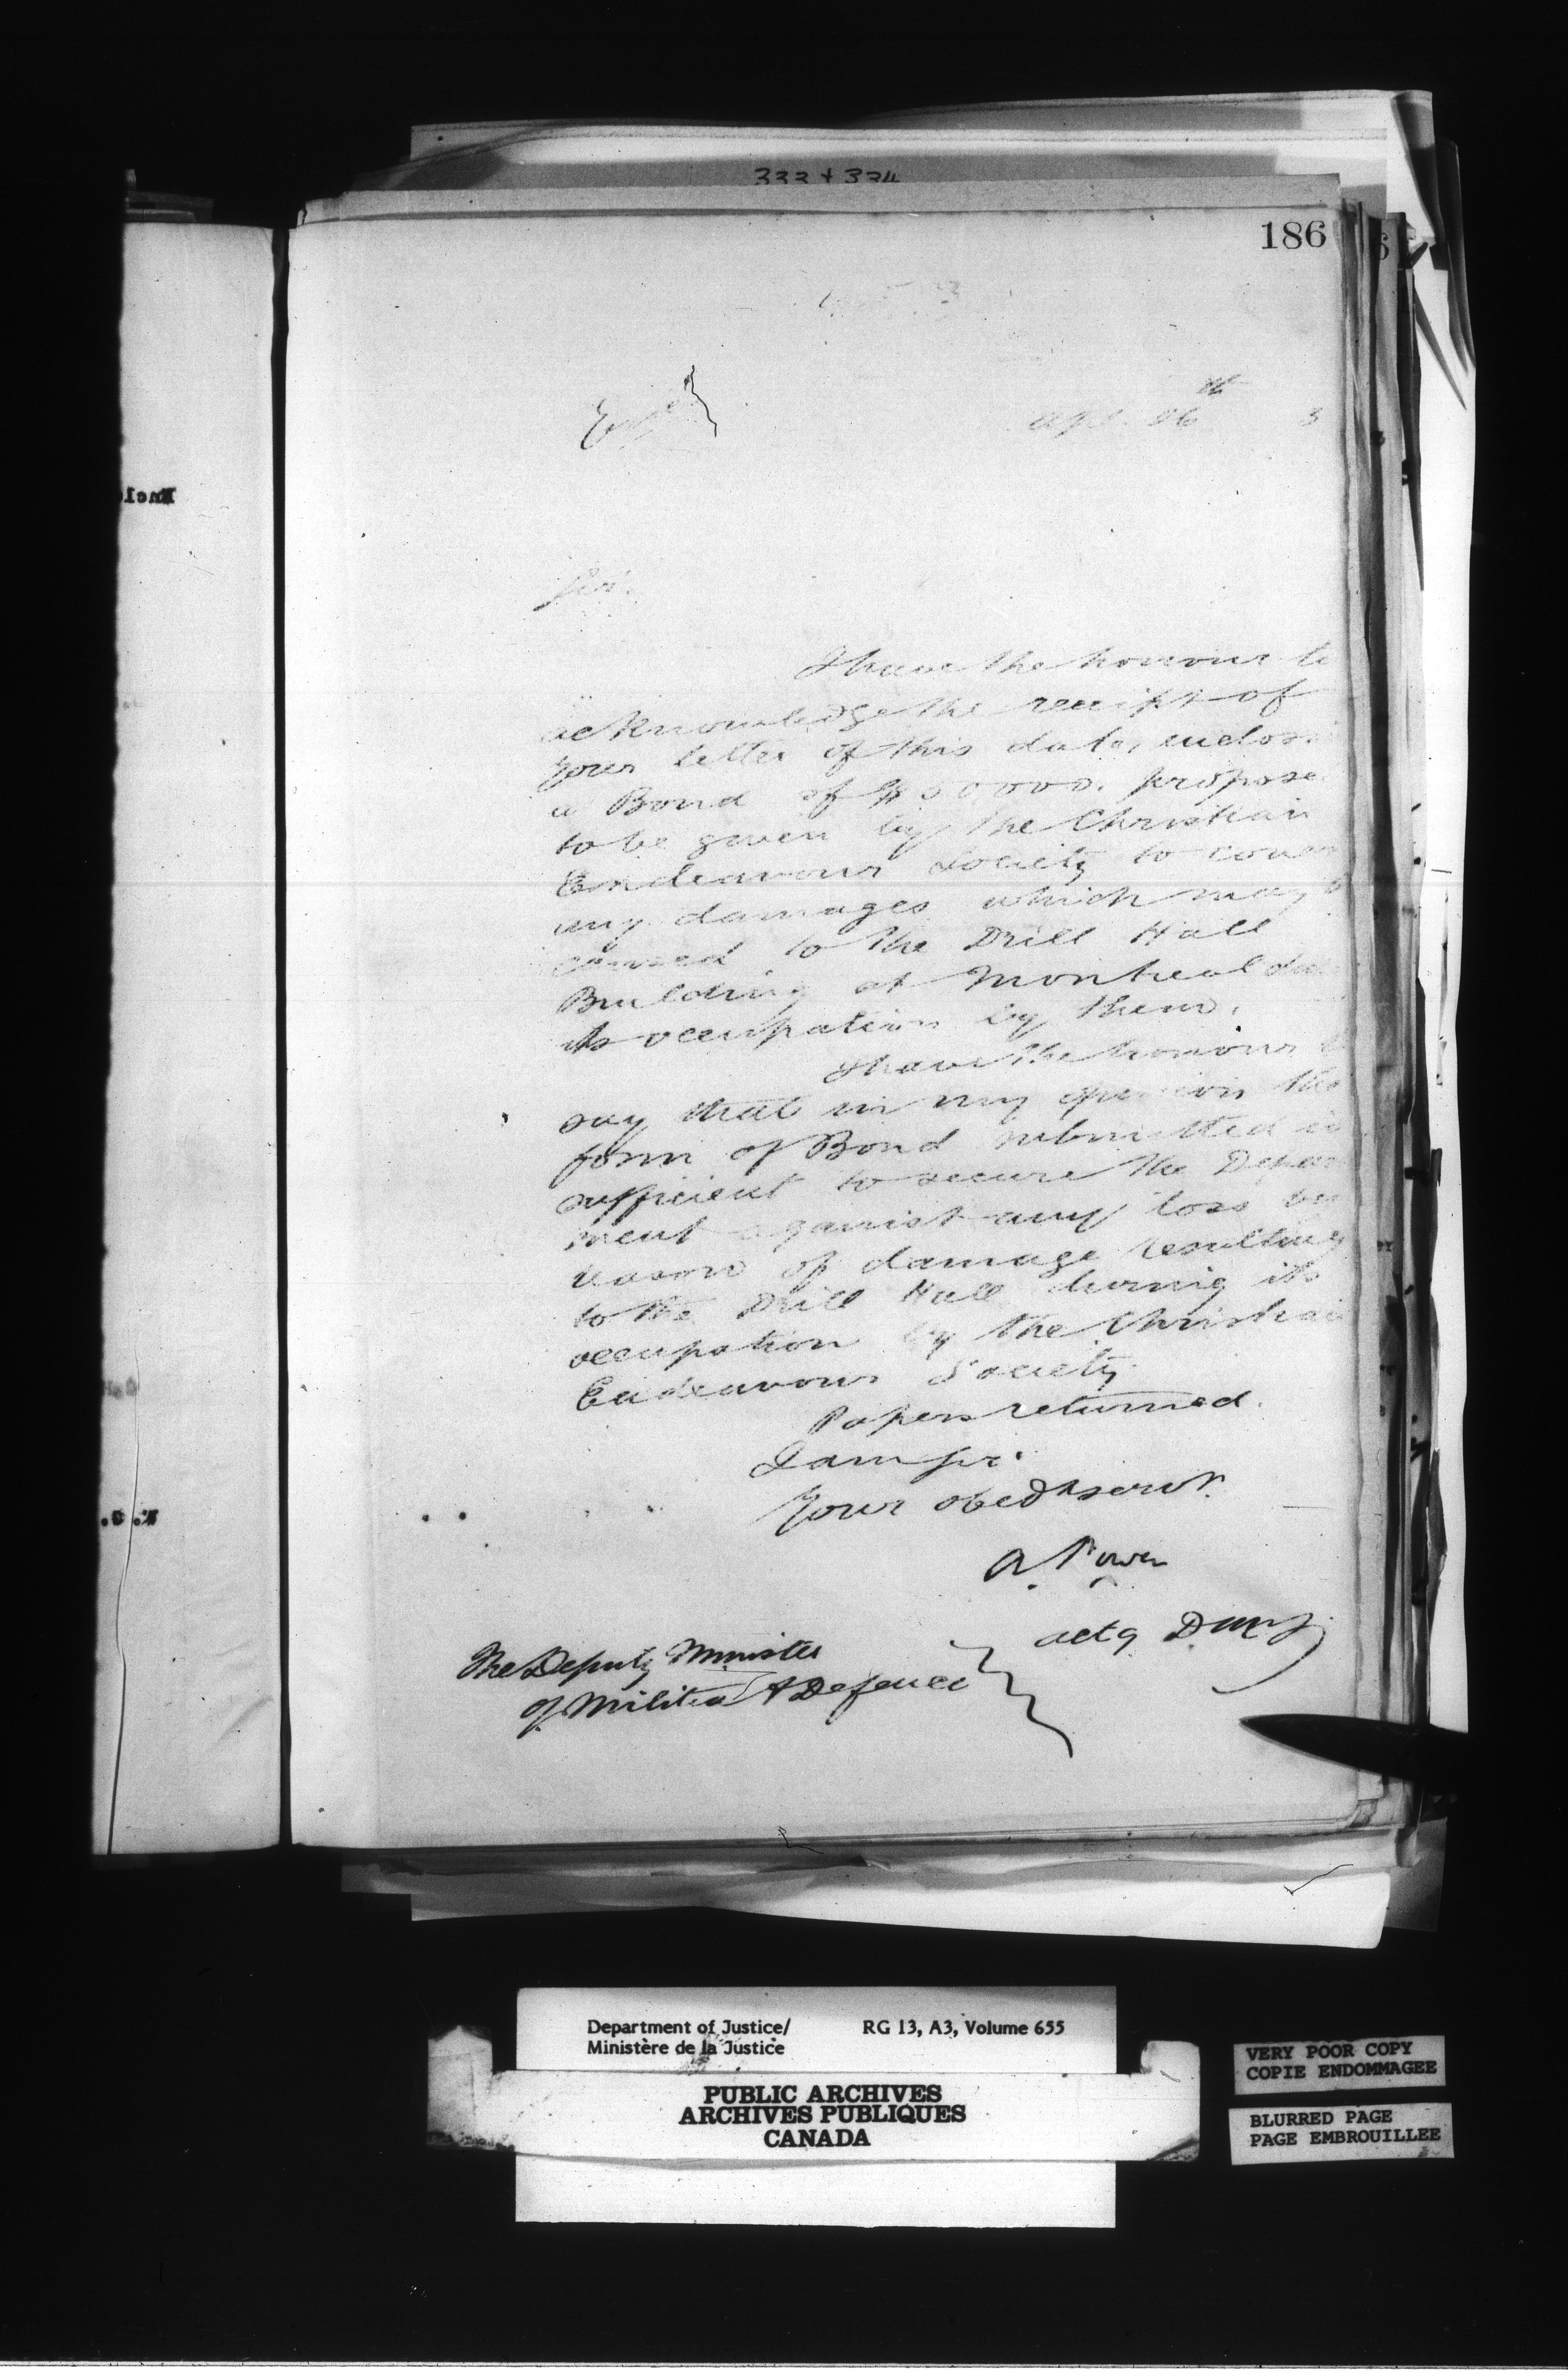 333 + 334
186
Apl. 26th 3
Sir.
I have the honour to
acknowledge the receipt of
your letter of this date, enclosi
a Bond of $ propose
to be given by the Christian
Endeavour Society to cover
any damages which may b
caused to the Drill Hall
Building at Montreal du
its occupation by them.
I have the honour t
say that in my opinion the
form of Bond submitted is
sufficient to secure the Depart
ment against any loss by
reason of damage resulting
to the Drill Hall during its
occupation by the Christian
Endeavour Society.
Papers returned.
I am Sir
Your obedt servt.
A. Power
actg D.M.J.
The Deputy Minister
of Militia & Defence
Department of Justice/ RG 13, A3, Volume 655
Ministère de la Justice
PUBLIC ARCHIVES
ARCHIVES PUBLIQUES
CANADA
VERY POOR COPY
COPIE ENDOMMAGEE
BLURRED PAGE
PAGE EMBROUILLEE